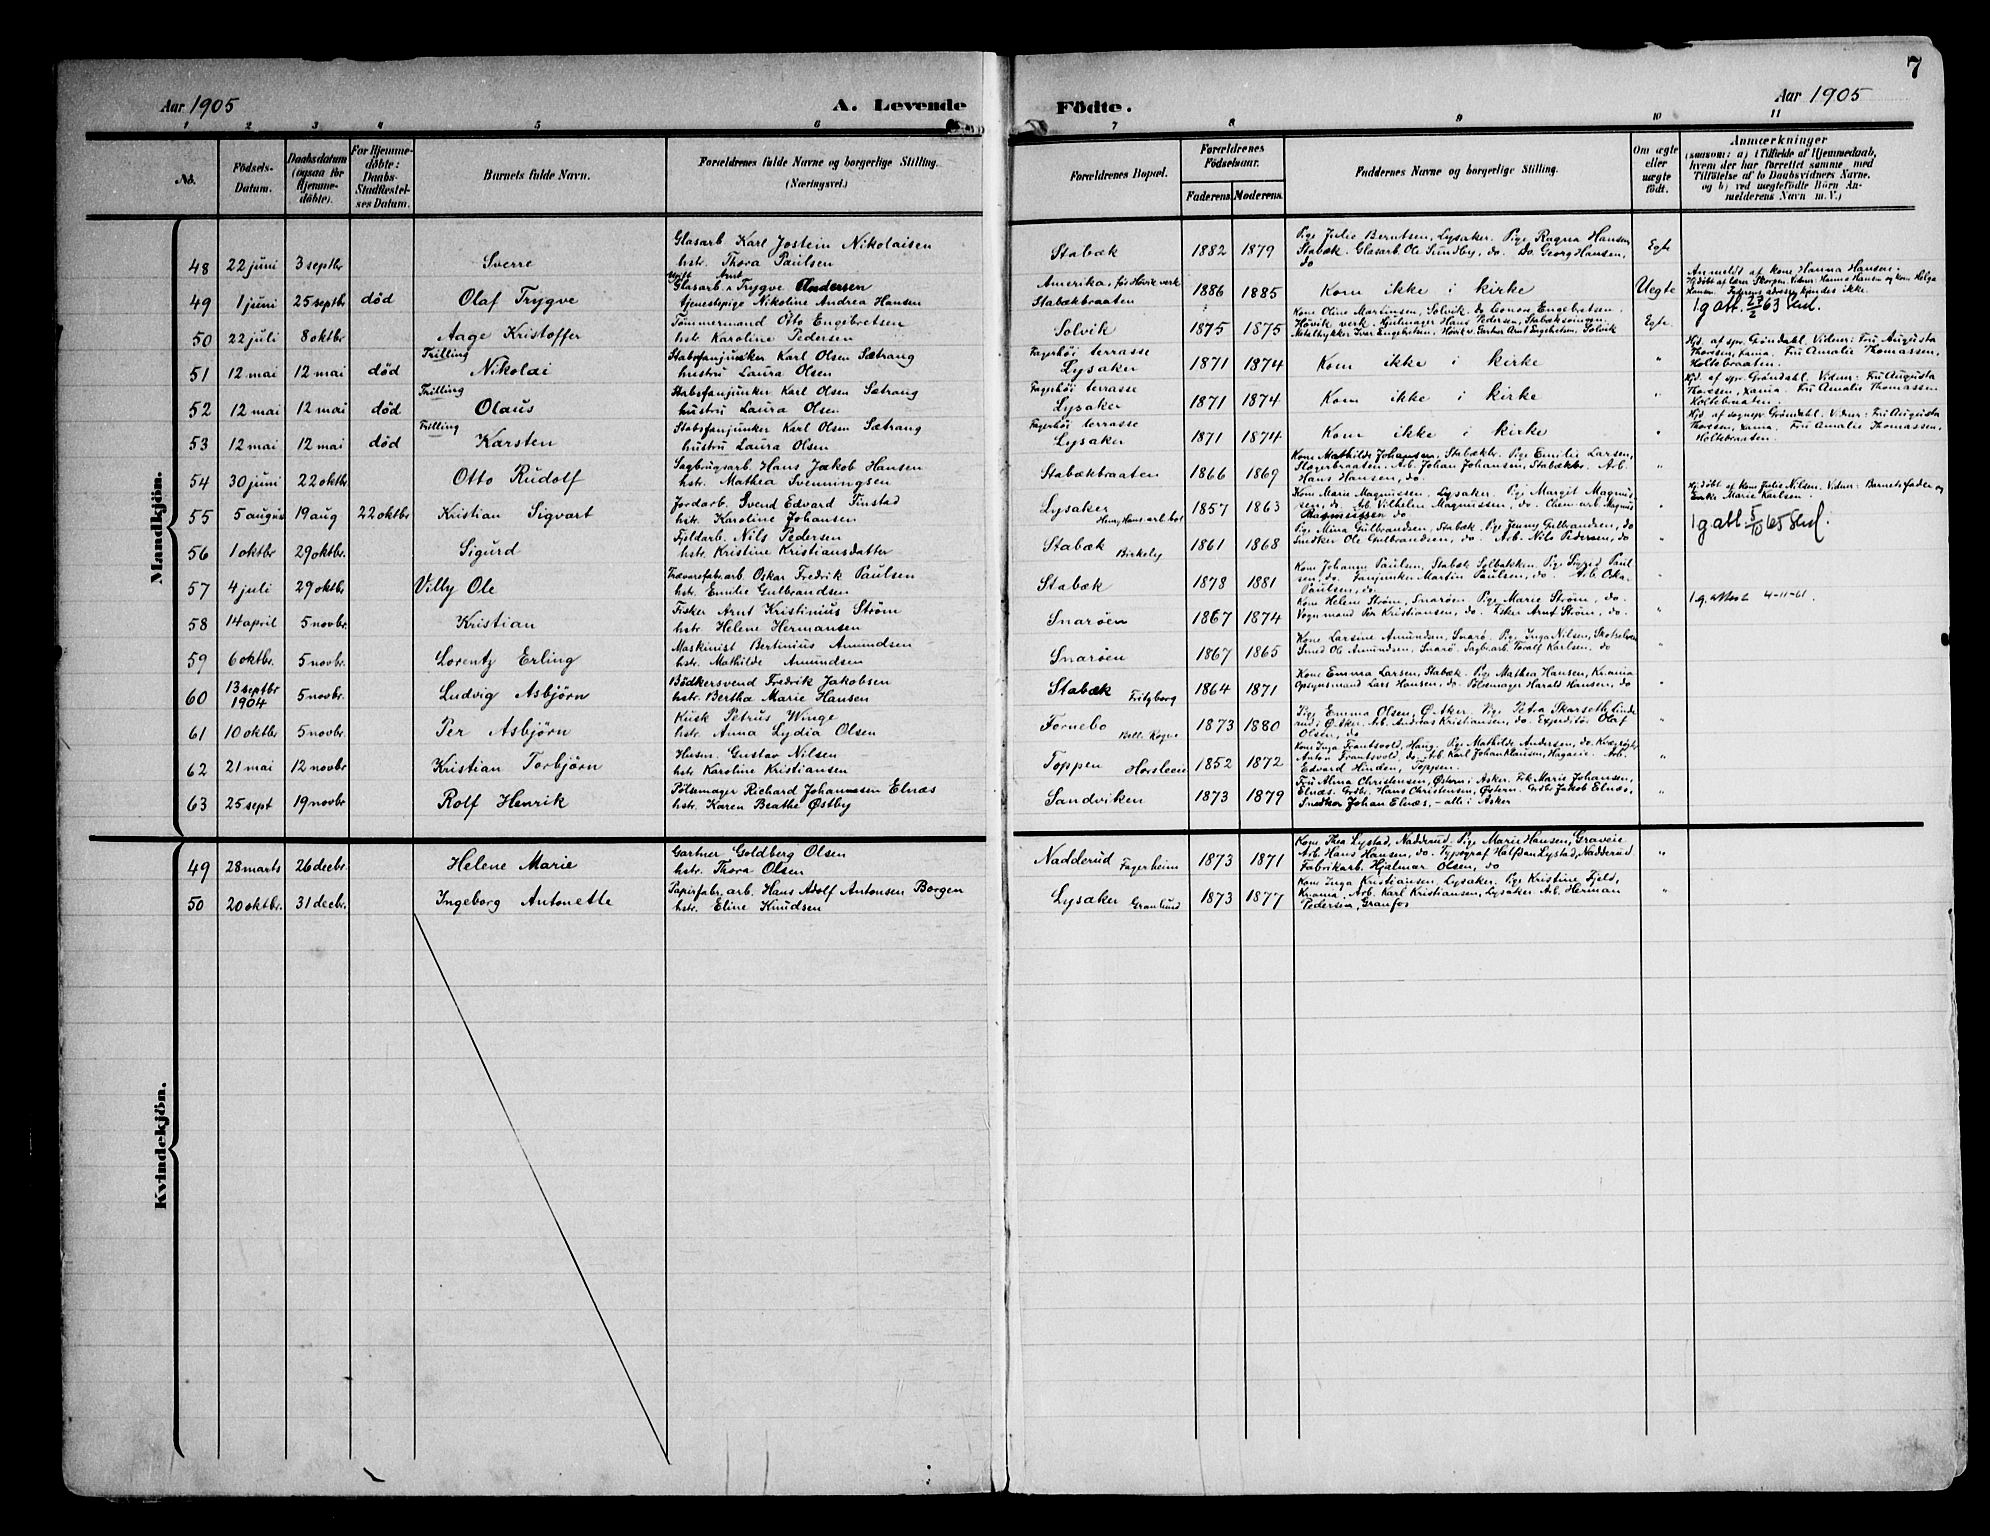 7
Aar 1905
A. Levende
Födte.
Aar 1905
1 2 3 4 5 6 7 8 9 10 11
No.
Födsels-
Datum.
Daabsdatum
(ogsaa for
Hjemme-
döbte).
For Hjemme-
döbte:
Daabs-
Stadfæstel-
ses Datum.
Barnets fulde Navn.
Forældrenes fulde Navne og borgerlige Stilling.
(Næringsvei.)
Forældrenes Bopæl.
Forældrenes
Födselsaar.
Faderens. Moderens.
Faddernes Navne og borgerlige Stilling.
Om ægte
eller
uægte
födt.
Anmærkninger
(saasom: a) i Tilfælde af Hjemmedaab,
hvem der har forrettet samme, med
Tilföielse af to Daabsvidners Navne.
og b) ved uægtefödte Börn An-
melderens Navn m. V.)
Mandkjön.
48 22 juni 3 septbr Sverre
Glasarb. Karl Jostein Nikolaisen
hstr. Thora Paulsen
Stabæk 1882 1879
Pige Julie Berntsen, Lysaker. Pige Ragna Hansen
Stabæk. Glasarb. Ole Sundby, do. Do. Georg Hansen,
do
Egte
49 1 juni 25 septbr død Olaf Trygve
Glasarb. Trygve Andersen
tjenestepige Nikoline Andrea Hansen
Amerika, før Høvik verk
Stabækbraaten 1886 1885
Kom ikke i kirke
Uegte
Anmeldt af kone Hanna Hansen
1 g att. 27/2 63
50 22 juli 8 oktbr Aage Kristoffer
Tömmermand Otto Engebretsen
hstr. Karoline Pedersen
Solvik 1875 1875
Kone Oline Martinsen, Solvik, do Leonor Engebretsen
Egte
51 12 mai 12 mai død Trilling
Nikolai
Stabsfanjunker Karl Olsen Sætrang
hustru Laura Olsen
Fagerhöi terrasse
Lysaker 1871 1874
Kom ikke i kirke
"
Hjd. af spr. Gröndahl. Vidner: Fru Augusta
Thoresen, Xania. Fru Amalie Thomassen,
Holtebraaten.
52 12 mai 12 mai død Trilling
Olaus
Stabsfanjunker Karl Olsen Sætrang
hustru Laura Olsen
Fagerhöi terrasse
Lysaker 1871 1874
Kom ikke i kirke
"
Hjd. af spr. Gröndahl. Vidner: Fru Augusta
Thoresen, Xania. Fru Amalie Thomassen
Holtebraaten.
53 12 mai 12 mai død Trilling
Karsten
Stabsfanjunker Karl Olsen Sætrang
hustru Laura Olsen
Fagerhöi terrasse
Lysaker 1871 1874
Kom ikke i kirke
"
Hjd. af sognepr. Gröndahl. Vidner: Fru Augusta
Thoresen, Xania. Fru Amalie Thomassen,
Holtebraaten.
54 30 juni 22 oktbr Otto Rudolf
Sagbrugsarb. Hans Jakob Hansen
hstr. Mathea Svenningsen
Stabækbraaten 1866 1869
Kone Mathilde Johansen, Stabækbr. Pige Emilie Larsen,
Slagerbraaten. Arb. Johan Johansen, Stabækbr. Arb.
Hans Hansen, do.
"
55 5 august 19 aug 22 oktbr Kristian Sigvart
Jordarb. Svend Edvard Tinstad
hstr. Karoline Johansen
Lysaker 1857 1863
Kone Marie Magnussen, Lysaker. Pige Margit Magnus-
sen, do. Arb. Vilhelm Magnussen, do.
"
Hjdöbt af kone Julie Nilsen. Vidner: Barnets fader og
Emilie Marie Karlsen.
1 g att 5/10 65
56 1 oktbr 29 oktbr Sigurd
Fjeldarb. Nils Pedersen
hstr. Kristine Kristiansdatter
Stabæk Birkely 1861 1868
Pige Mina Gulbrandsen, Stabæk. Pige Jenny Gulbrandsen, do
Snedker Ole Gulbrandsen, do. Arb. Nils Pedersen, do
"
57 4 juli 29 oktbr Villy Ole
Trævarefab.arb. Oskar Fredrik Paulsen
hstr. Emilie Gulbrandsen
Stabæk 1878 1881
Kone Johanne Paulsen, Stabæk Solbakken. Pige Sigrid Paul-
sen, do. Fanjunker Martin Paulsen, do. Arb. Oskar
Paulsen, do.
"
1 g. attest 4-11-61.
58 14 april 5 novbr. Kristian
Fisker Arnt Kristinius Strøm
hstr. Helene Hermansen
Snarøen 1867 1874
Kone Helene Strøm, Snarøen. Pige Marie Strøm, do.
Vognmand Per Kristiansen, do. Fisker Arnt Strøm, do.
"
59 6 oktbr. 5 novbr. Lorentz Erling
Maskinist Bertinius Amundsen
hstr. Mathilde Amundsen
Snarøen 1867 1865
Kone Larsine Amundsen, Snarø. Pige Inga Nilsen,
Smed Ole Amundsen, Snarø. Sagbr.arb. Toralf Karlsen, do
"
60 13 septbr
1904 5 novbr. Ludvig Asbjørn
Bödkersvend Fredrik Jakobsen
hstr. Bertha Marie Hansen
Stabæk Fritzborg 1864 1871
Kone Emma Larsen, Stabæk. Pige Mathea Hansen, Krania
Opsynsmand Lars Hansen, do. Pölsemager Harald Hansen, do
"
61 10 oktbr 5 novbr. Per Asbjørn
Kusk Petrus Winge
hstr. Anna Lydia Olsen
Fornebo 1873 1880
Pige Emma Olsen, Ø. Aker. Pige Petra Skarseth, Linde
rud i Ø. Aker. Arb. Andreas Kristiansen, do. Expeditör Olaf
Olsen, do
"
62 21 mai 12 novbr Kristian Torbjørn
Husm. Gustav Nilsen
hstr Karoline Kristiansen
Toppen 1852 1872
Kone Inga Frantsvold, Haug. Pige Mathilde Andersen, do.
Anton Frantsvold, do. Arb. Karl Johan Klausen, Hagavei. Arb.
Edvard Hinden, Toppen.
"
63 25 sept 19 novbr Rolf Henrik
Pölsemager Richard Johannessen Elnæs
hstr. Karen Beathe Østby
Sandviken 1873 1879
Fru Alma Christensen, Østern i Asker. Frk. Marie Johansen,
Elnæs. Grdbr. Hans Christensen, Østern. Grdbr. Jakob Elnæs,
Snedker Johan Elnæs, - alle i Asker
"
Kvindekjön.
49 28 marts 26 decbr Helene Marie
Gartner Goldberg Olsen
hstr. Thora Olsen
Nadderud Fagerheim 1873 1871
Kone Thea Lystad, Nadderud. Pige Marie Hansen, Graveie
Arb. Hans Hansen, do. Typograf Halfdan Lystad, Nadderud
Fabrikarb. Hjalmar Olsen, do
"
50 20 oktbr. 31 decbr. Ingeborg Antonette
Papirfabr. arb. Hans Adolf Antonsen Borgen
hstr. Eline Knudsen
Lysaker Granlund 1873 1877
Kone Inga Kristiansen, Lysaker. Pige Kristine Fjeld,
Krania. Arb. Karl Kristiansen, Lysaker. Arb. Herman
Pedersen, Granfos
"